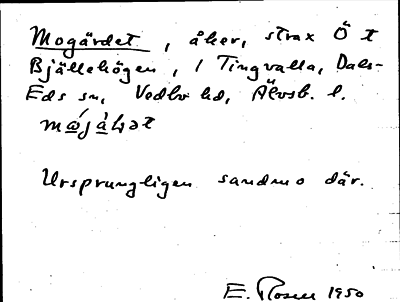 Mogärdet, åker, strax Ö t
Bjällehögen, i Tingvalla, Dals-
Eds sn, Vedbo hd, Älvsb. l.
Ursprungligen sandmo där.
E. Rosell 1950